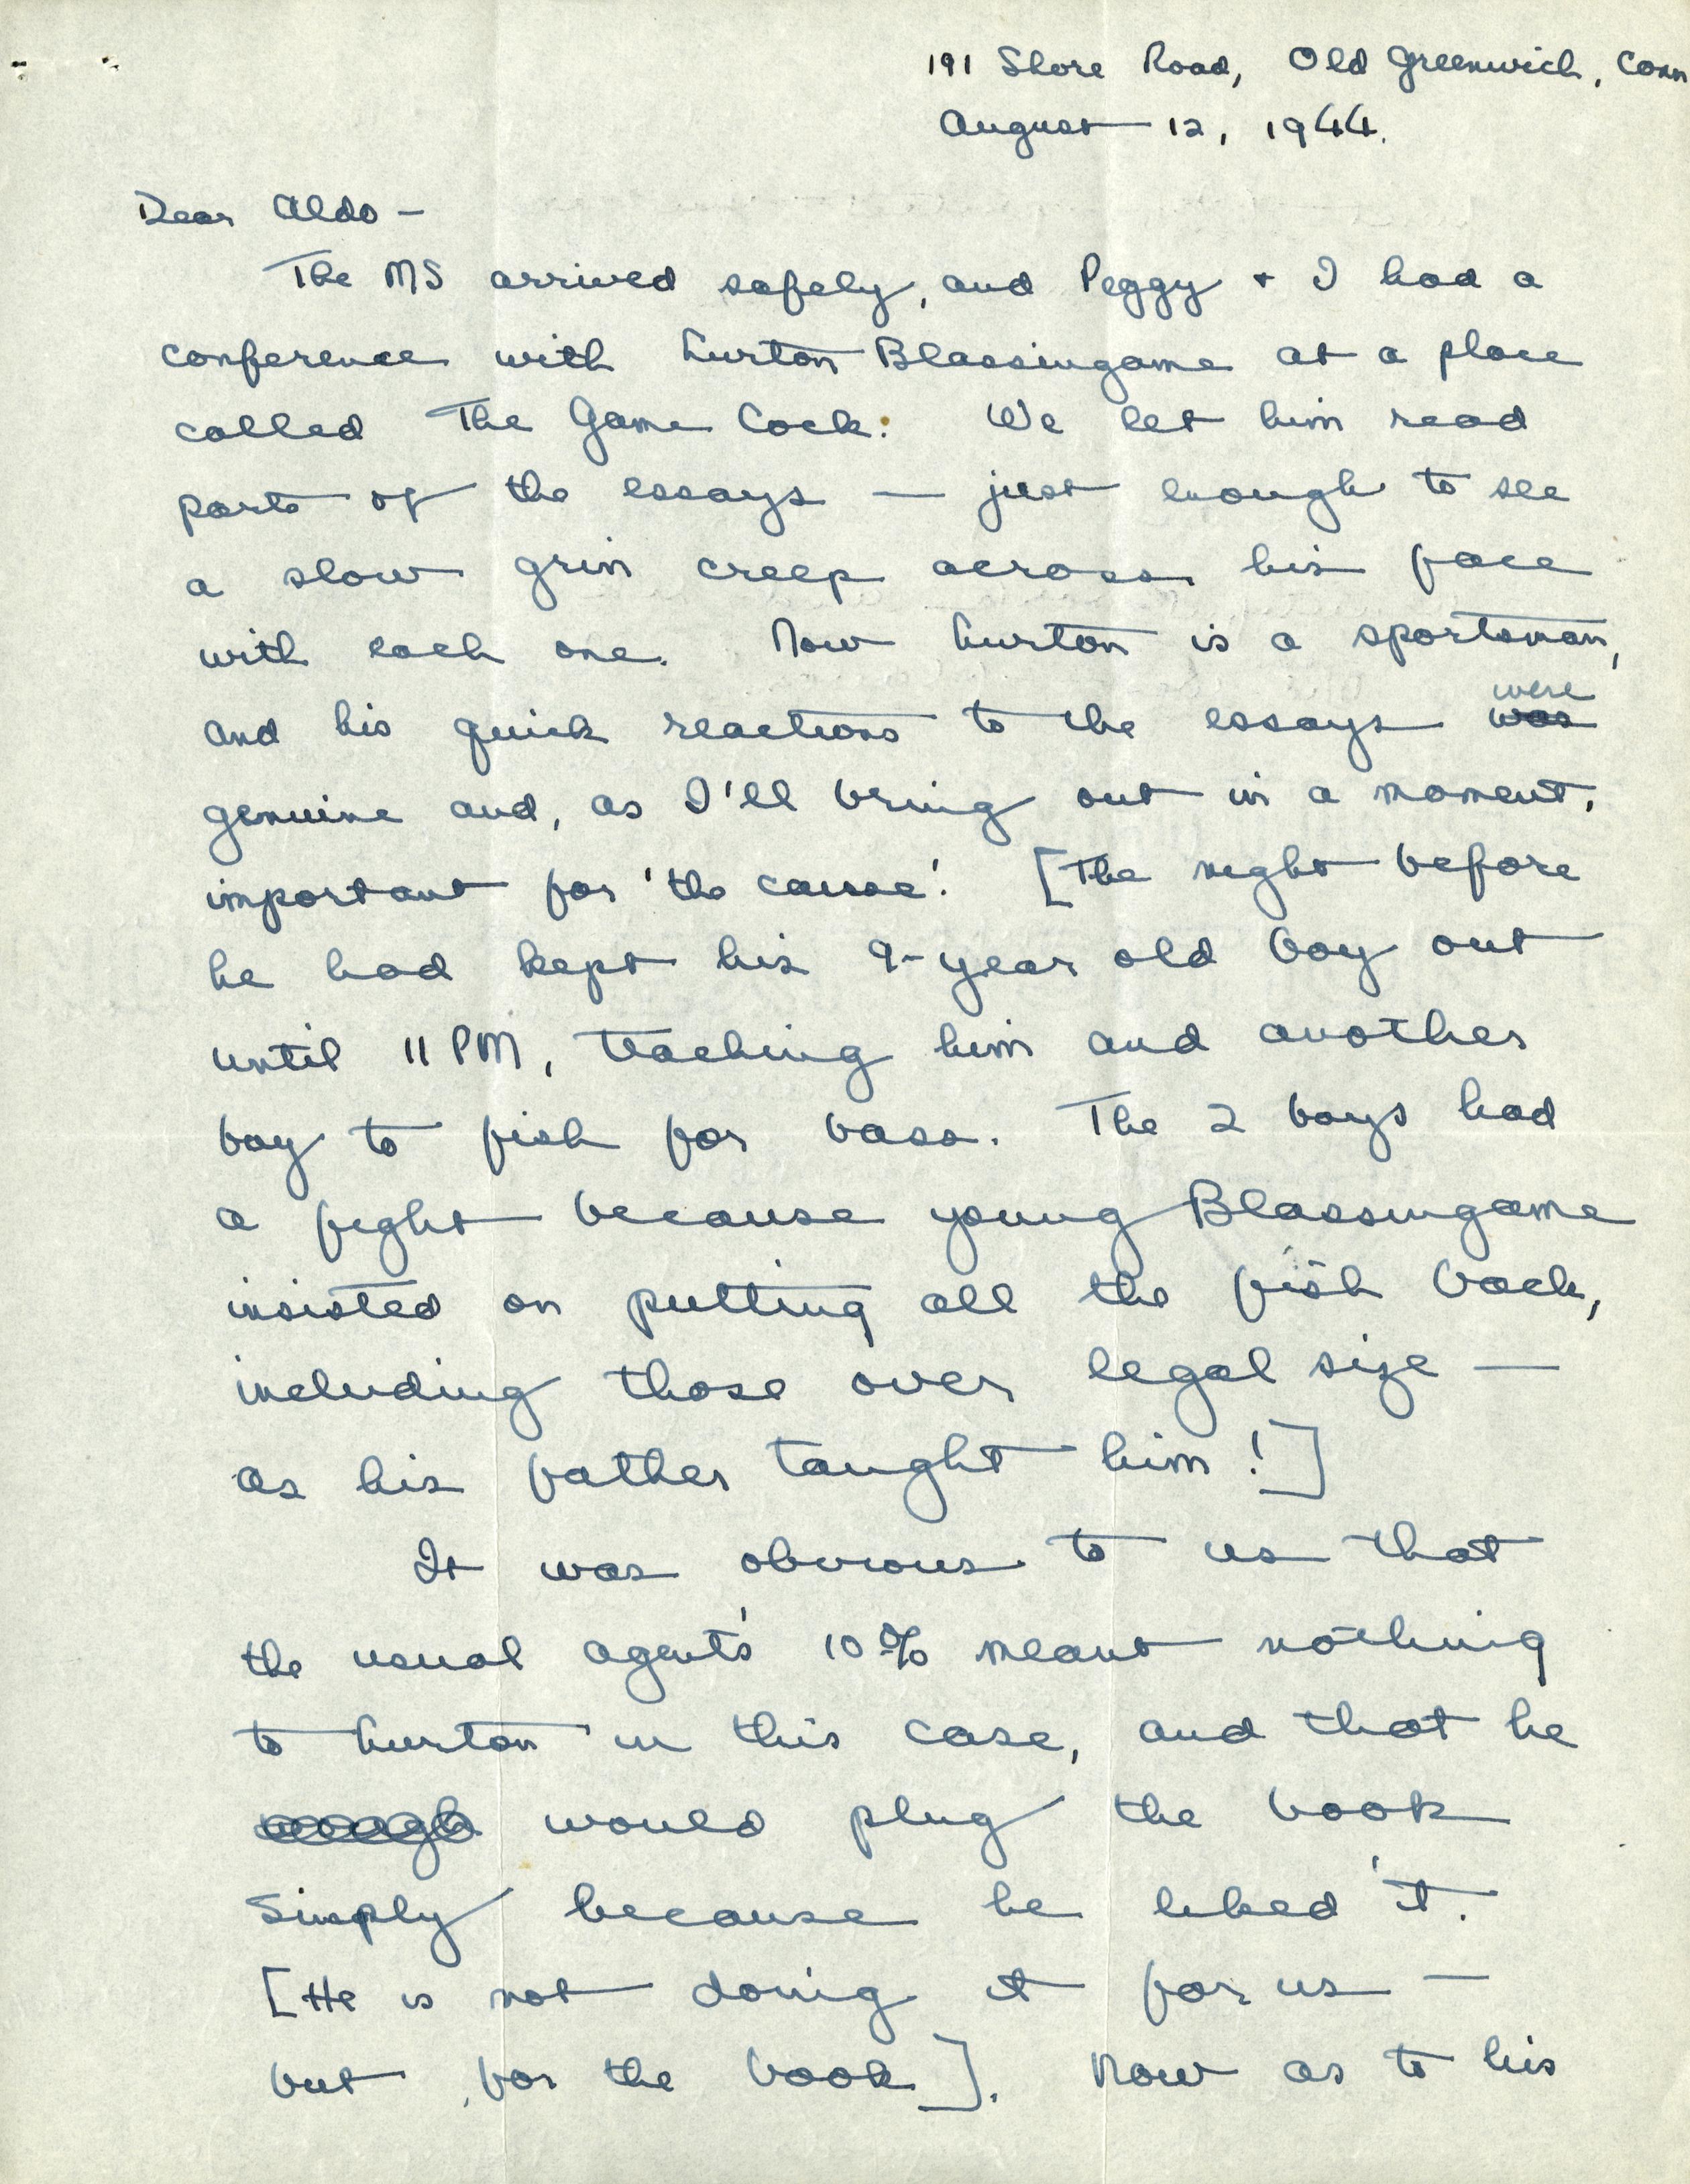 191 Shore Road, Old Greenwich, Conn
August 12, 1944.
Dear Aldo —
The MS arrived safely, and Peggy + I had a
conference with Lurton Blassingame at a place
called The Game Cock. We let him read
parts of the essays — just enough to see
a slow grin creep across his face
with each one. Now Lurton is a sportsman,
and his quick reactions to the essays were
genuine and, as I'll bring out in a moment,
important for 'the cause'. [The night before
he had kept his 9-year old boy out
until 11 PM, teaching him and another
boy to fish for bass. The 2 boys had
a fight because young Blassingame
insisted on putting all the fish back,
including those over legal size —
as his father taught him!]
It was obvious to us that
the usual agent's 10% meant nothing
to Lurton in this case, and that he
would plug the book
simply because he liked it.
[He is not doing it for us —
but for the book]. Now as to his